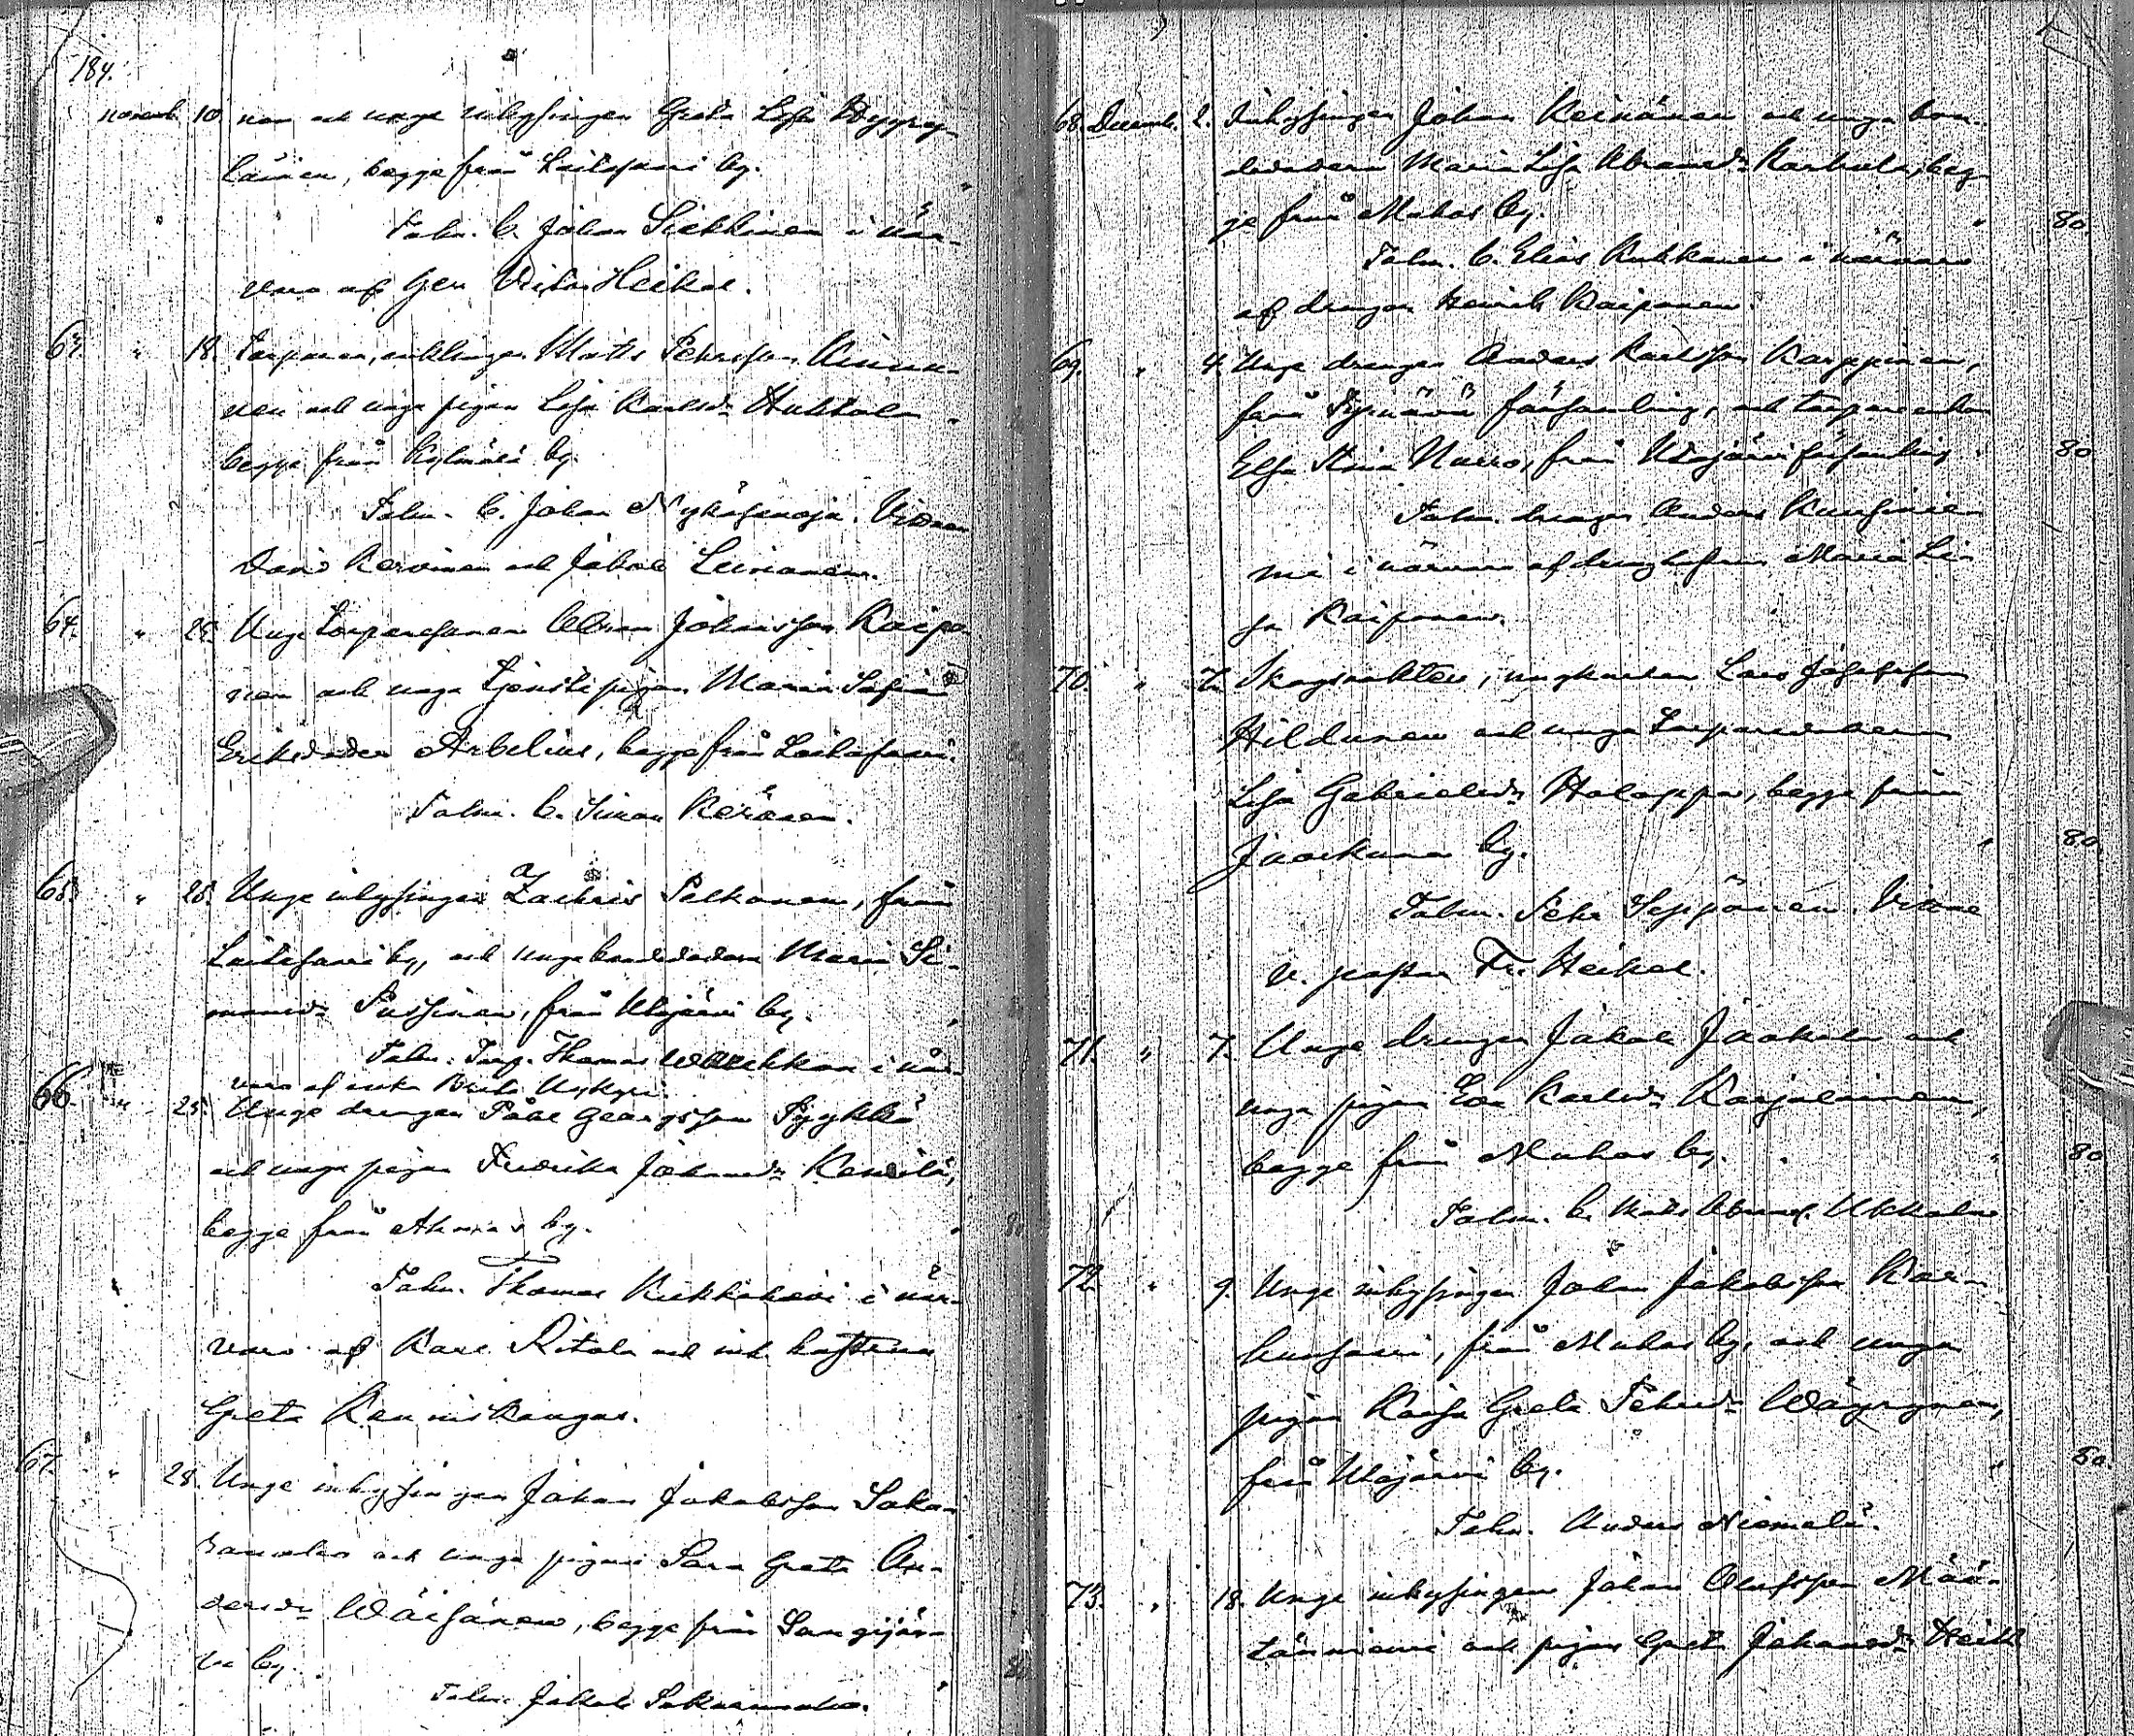 184.
novemb. 10 nen och unga inhysingen Greta Lisa
läinen, begge från Laitasaari by.
Talm. b. Johan Siekkinen i när-
varo af Gen Heikel.
63. " 18. Torparen, enklingen Matts Pehrsson
nen och unga pigan Lisa Karlsdr Huttola
begge från Kylmälä by.
Talm. b. Johan Vidner
David Kervinen och Jakob Leinonen.
64. " Unge torparesonen Abram Johansson Kaipa-
nen och unga tjenstepigan Maria Sofia
Eriksdoter Arbelius, begge från Laitasaari.
Talm. b. Simon Keränen.
65. " 25. Unge inhysingen Zachris Pelkonen, från
Laitasaari by, och unga bondedotern Maria Si-
monsdr Pussinen, från Utajärvi by. "
Talm. Torp. Thomas i när-
varo af enka Brita
66. " 25. Unge drengen Påhl Georgsson Pyykkö
och unga pigan Fredrika Johansdr
begge från Ahmas by. " 80.
Talm. Thomas i när-
varo af Karl Ritola och inh. hustrun
Greta Kauniskangas.
67. " 28. Unge inhysingen Johan Jakobsson Saka-
ranaho och unga pigan Sara Greta An-
dersdr Wäisänen, begge från Sangijär-
vi by. " 80.
Talm. Jakob
68. Decemb. 2. Inhysingen Johan Keinänen och unga bon-
dedotern Maria Lisa Abramsdr Karhula, beg-
ge från Muhos by. " 80.
Talm. b. Elias Kukkonen i närvaro
af drengen Henrik Kaiponen.
69. " 4. Unge drengen Anders Karlsson Karppinen,
från Tyrnävä församling, och torpareenkan
Elsa Stina Nurro, från Utajärvi församling. 80
Talm. drengen Anders Kuusinie-
mi i närvaro af drenghustrun Maria Li-
sa Kaiponen.
70. " 7. Skogsvakten, ungkarlen Lars Josefsson
Hildunen och unga torparedotern
Lisa Gabrielsdr Holappa, begge från
Juorkuna by. " 80.
Talm. Pehr Seppänen. Vidne
v. pastor Fr. Heikel.
71. " 7. Unge drengen Jakob Jaakola och
unga pigan Eva Karlsdr Karjalainen,
begge från Muhos by. " 80
Talm. b. Matts Abramss. Ukkola
72. " 9. Unge inhysingen Johan Jakobsson Kar-
hunsaari, från Muhos by, och unga
pigan Kaisa Greta Pehrsdr Wäyrynen,
från Utajärvi by. " 80.
Talm. Anders Niemelä.
73. " 18. Unge inhysingen Johan Olofsson Män-
täniemi och pigan Greta Johansdr Heikk